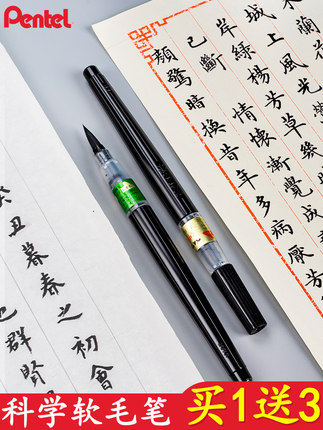 Pentel
木蘭花
城上風光
岸綠楊芳草幾
已斷情懷漸覺成
顏驚暗換昔年多病厭芳
癸丑暮春之初會
也群賢
科学软毛笔
买1送3